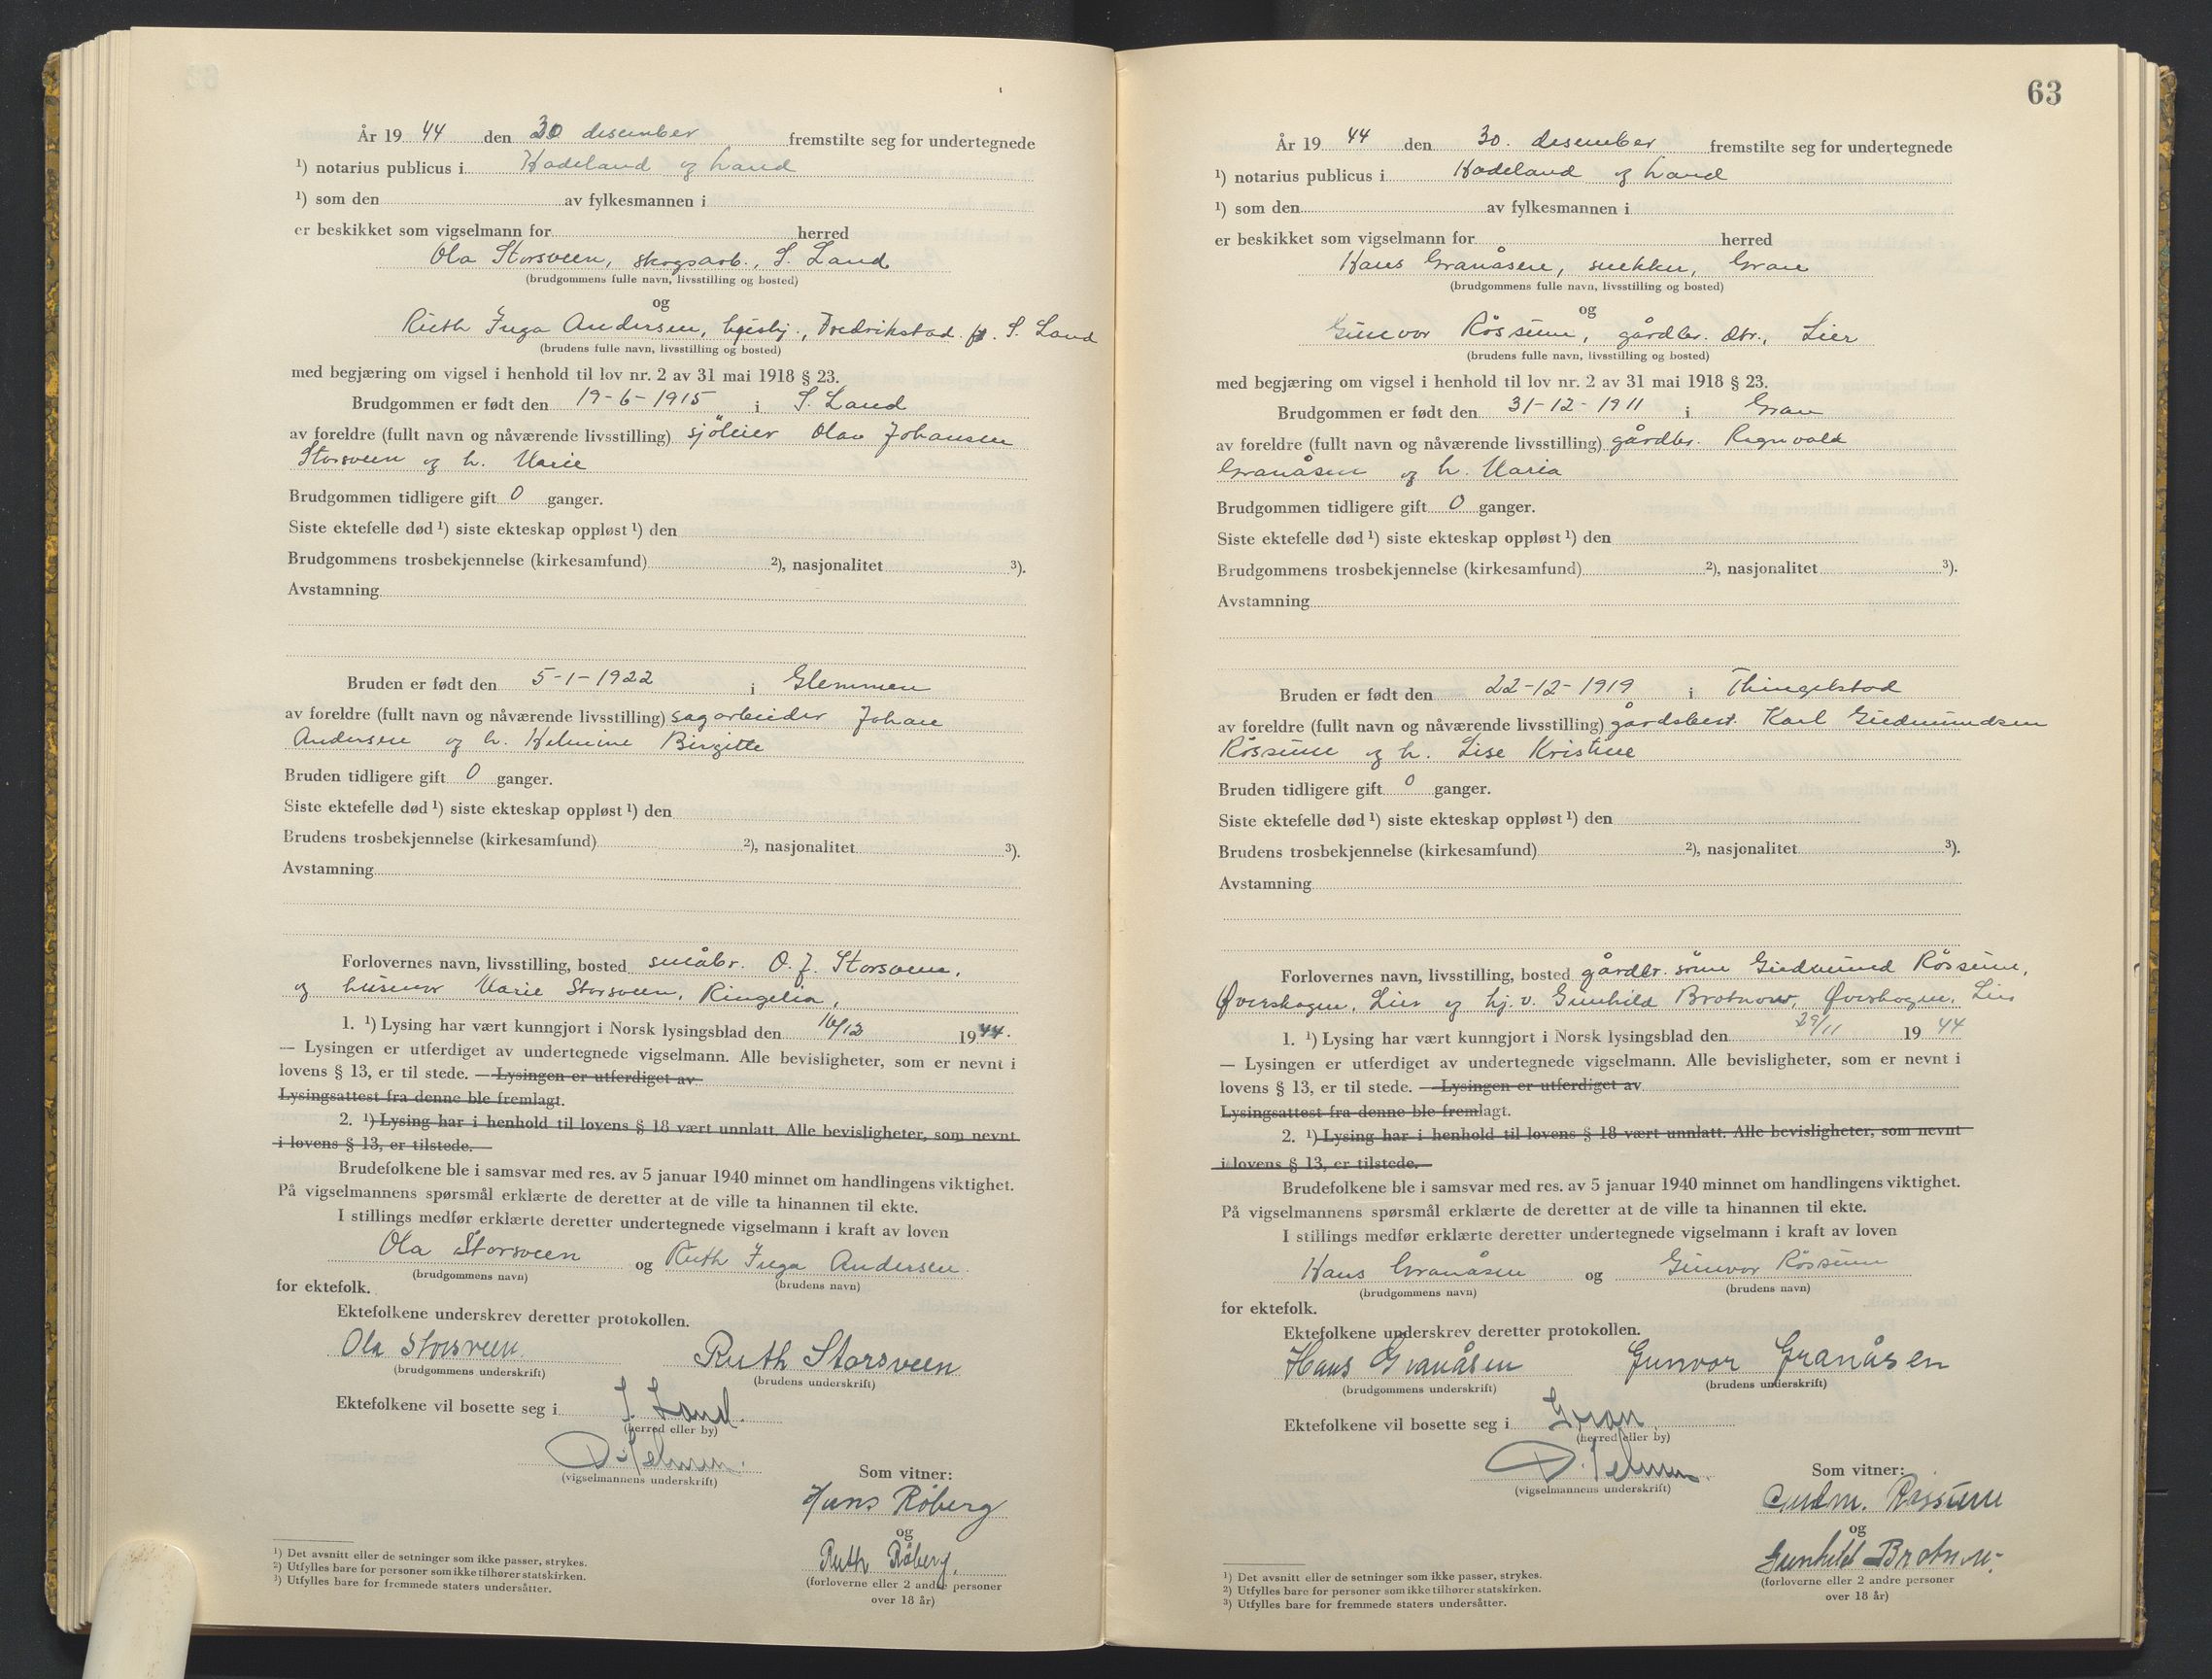 År 19 44 den 30 desember fremstilte seg for undertegnede
¹) notarius publicus i Hadeland og Land
¹) som den av fylkesmannen i
er beskikket som vigselmann for herred
Ola Storsveen, skogsarb., S. Land
(brudgommens fulle navn, livsstilling og bosted)
og
Ruth Inga Andersen, Fredrikstad. S. Land
(brudens fulle navn, livsstilling og bosted)
med begjæring om vigsel i henhold til lov nr. 2 av 31 mai 1918 § 23.
Brudgommen er født den 19-6-1915 i S. Land
av foreldre (fullt navn og nåværende livsstilling) sjøleier Olav Johansen
Storsveen og h. Marie
Brudgommen tidligere gift 0 ganger.
Siste ektefelle død ¹) siste ekteskap oppløst ¹) den
Brudgommens trosbekjennelse (kirkesamfund) ²), nasjonalitet ³).
Avstamning
Bruden er født den 5-1-1922 i Glemmen
av foreldre (fullt navn og nåværende livsstilling) sagarbeider Johan
Andersen og h. Helmine Birgitte
Bruden tidligere gift 0 ganger.
Siste ektefelle død ¹) siste ekteskap oppløst ¹) den
Brudens trosbekjennelse (kirkesamfund) ²), nasjonalitet ³).
Avstamning
Forlovernes navn, livsstilling, bosted småbr. O. J. Storsveen,
og husmor Marie Storsveen, Ringelia,
1. ¹) Lysing har vært kunngjort i Norsk lysingsblad den 16/12 1944.
— Lysingen er utferdiget av undertegnede vigselmann. Alle bevisligheter, som er nevnt i
lovens § 13, er til stede. — Lysingen er utferdiget av
Lysingsattest fra denne ble fremlagt.
2. ¹) Lysing har i henhold til lovens § 18 vært unnlatt. Alle bevisligheter, som nevnt
i lovens § 13, er tilstede. —
Brudefolkene ble i samsvar med res. av 5 januar 1940 minnet om handlingens viktighet.
På vigselmannens spørsmål erklærte de deretter at de ville ta hinannen til ekte.
I stillings medfør erklærte deretter undertegnede vigselmann i kraft av loven
Ola Storsveen og Ruth Inga Andersen.
(brudgommens navn) (brudens navn)
for ektefolk.
Ektefolkene underskrev deretter protokollen.
Ola Storsveen Ruth Storsveen
(brudgommens underskrift) (brudens underskrift)
Ektefolkene vil bosette seg i S. Land.
(herred eller by)
(vigselmannens underskrift)
Som vitner:
Hans Røberg
og
Ruth Røberg.
(forloverne eller 2 andre personer
over 18 år)
¹) Det avsnitt eller de setninger som ikke passer, strykes.
²) Utfylles bare for personer som ikke tilhører statskirken.
³) Utfylles bare for fremmede staters undersåtter.
63
År 19 44 den 30. desember fremstilte seg for undertegnede
¹) notarius publicus i Hadeland og Land
¹) som den av fylkesmannen i
er beskikket som vigselmann for herred
Hans Granåsen, snekker, Gran
(brudgommens fulle navn, livsstilling og bosted)
og
Gunvor Røssum, gårdbr. dtr., Lier
(brudens fulle navn, livsstilling og bosted)
med begjæring om vigsel i henhold til lov nr. 2 av 31 mai 1918 § 23.
Brudgommen er født den 31-12-1911 i Gran
av foreldre (fullt navn og nåværende livsstilling) gårdbr. Ragnvald
Granåsen og h. Maria
Brudgommen tidligere gift 0 ganger.
Siste ektefelle død ¹) siste ekteskap oppløst ¹) den
Brudgommens trosbekjennelse (kirkesamfund) ²), nasjonalitet ³).
Avstamning
Bruden er født den 22-12-1919 i Thingelstad
av foreldre (fullt navn og nåværende livsstilling) gårdsbest. Karl Gudmundsen
Røssum og h. Lise Kristine
Bruden tidligere gift 0 ganger.
Siste ektefelle død ¹) siste ekteskap oppløst ¹) den
Brudens trosbekjennelse (kirkesamfund) ²), nasjonalitet ³).
Avstamning
Forlovernes navn, livsstilling, bosted gårdbr. sønn Gudmund Røssum,
Øverskogen, Lier og hj.v. Gunhild Brotnow, Øverskogen, Lier
1. ¹) Lysing har vært kunngjort i Norsk lysingsblad den 29/11 19 44
— Lysingen er utferdiget av undertegnede vigselmann. Alle bevisligheter, som er nevnt i
lovens § 13, er til stede. — Lysingen er utferdiget av
Lysingsattest fra denne ble fremlagt.
2. ¹) Lysing har i henhold til lovens § 18 vært unnlatt. Alle bevisligheter, som nevnt
i lovens § 13, er tilstede. —
Brudefolkene ble i samsvar med res. av 5 januar 1940 minnet om handlingens viktighet.
På vigselmannens spørsmål erklærte de deretter at de ville ta hinannen til ekte.
I stillings medfør erklærte deretter undertegnede vigselmann i kraft av loven
Hans Granåsen og Gunvor Røssum
(brudgommens navn) (brudens navn)
for ektefolk.
Ektefolkene underskrev deretter protokollen.
Hans Granåsen Gunvor Granåsen
(brudgommens underskrift) (brudens underskrift)
Ektefolkene vil bosette seg i Gran
(herred eller by)
(vigselmannens underskrift)
Som vitner:
Gudm. Røssum
og
Gunhild
(forloverne eller 2 andre personer
over 18 år)
¹) Det avsnitt eller de setninger som ikke passer, strykes.
²) Utfylles bare for personer som ikke tilhører statskirken.
³) Utfylles bare for fremmede staters undersåtter.